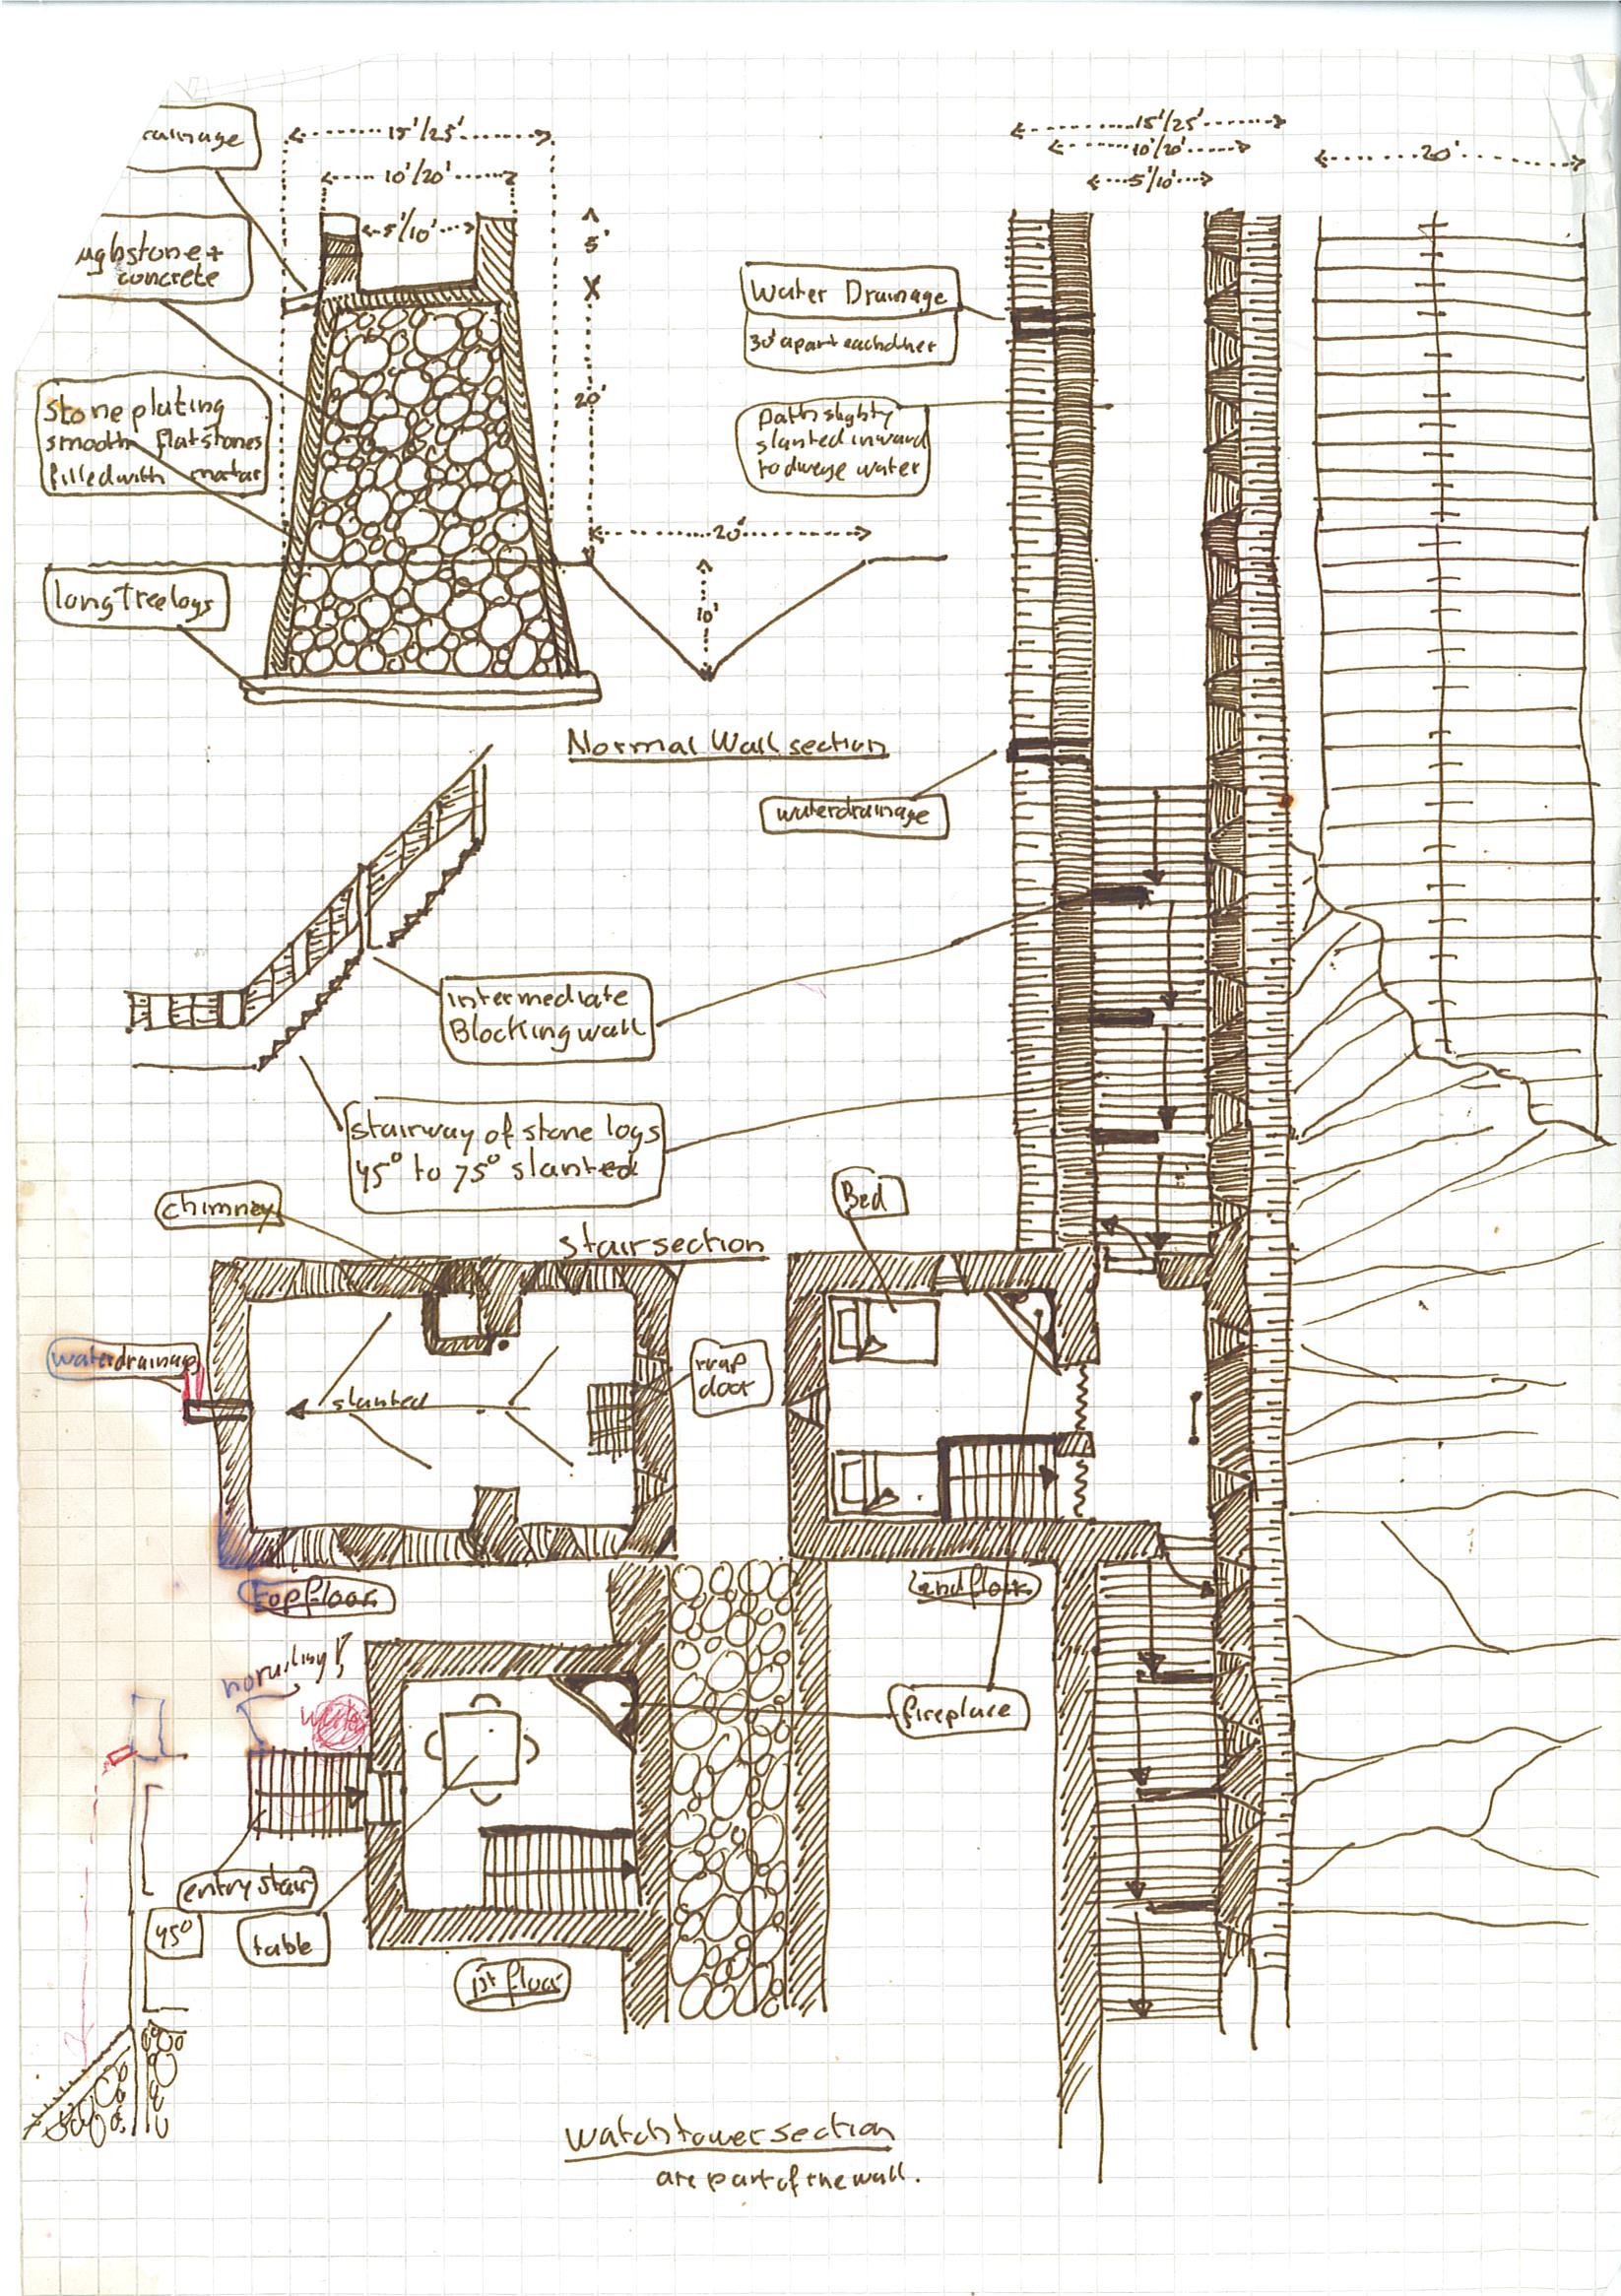 rainage
15'/25'
10'/20'
5'/10'
5'
20'
ughstone +
concrete
Stone plating
smooth flat stones
filled with mortar
long Tree logs
20'
10'
Normal Wall section
15'/25'
10'/20'
5'/10'
20'
Water Drainage
30' apart each other
path slighty
slanted inward
to
water
waterdrainage
intermediate
Blocking wall
stairway of stone logs
45° to 75° slanted
stair section
chimney
waterdrainage
slanted
trap
door
top floor
Bed
2nd floor
no railing!
fireplace
entry stair
45°
table
1st floor
Watchtower section
are part of the wall.